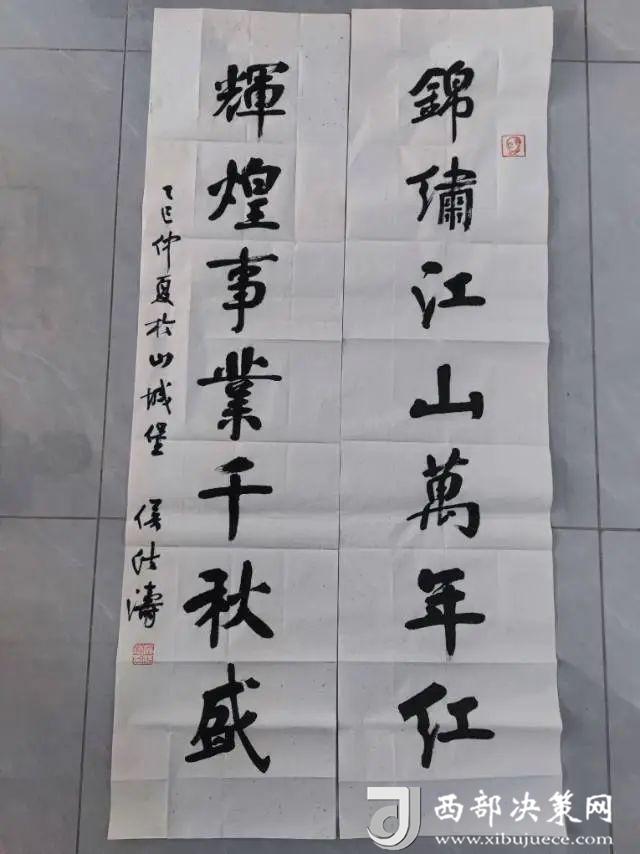 錦繡江山萬年红
輝煌事業千秋盛
乙巳仲夏於山城堡 侯洪濤
西部决策网
www.xibujuece.com